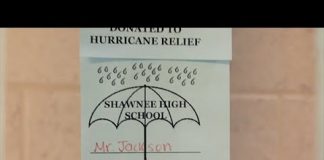 DONATED TO
HURRICANE RELIEF
SHAWNEE HIGH
SCHOOL
Mr. Jackson